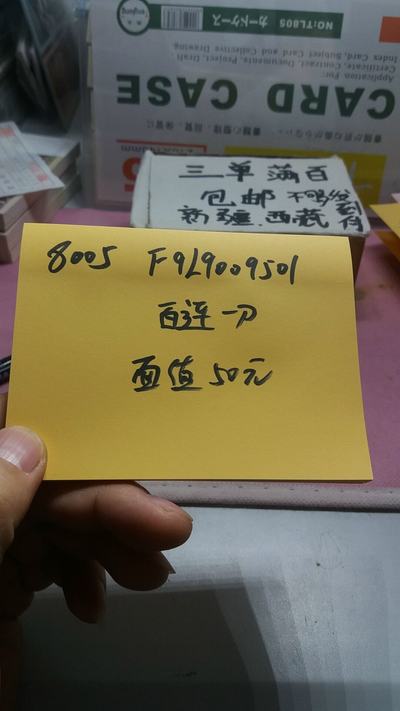 カードケース NO:TL805
Index Card, Subject Card and Collective Drawing
Certificate, Contract, Documents, Project, Draft,
Application For:
CARD CASE
三单满百
包邮
新疆.西藏
到付
8005 F9L9009501
百连一刀
面值50元